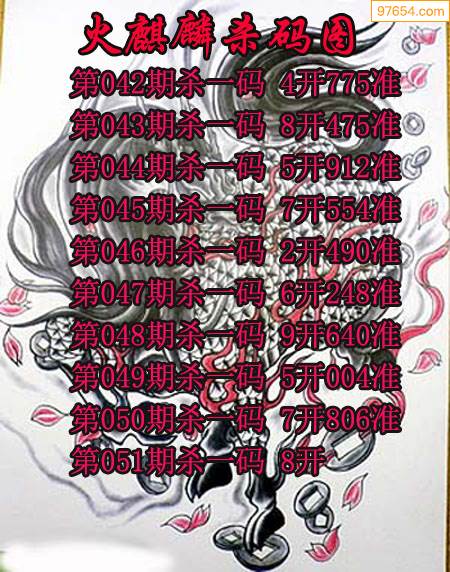 97654.com
火麒麟杀码图
第042期杀一码 4开775准
第043期杀一码 8开475准
第044期杀一码 5开912准
第045期杀一码 7开554准
第046期杀一码 2开490准
第047期杀一码 6开248准
第048期杀一码 9开640准
第049期杀一码 5开004准
第050期杀一码 7开806准
第051期杀一码 8开